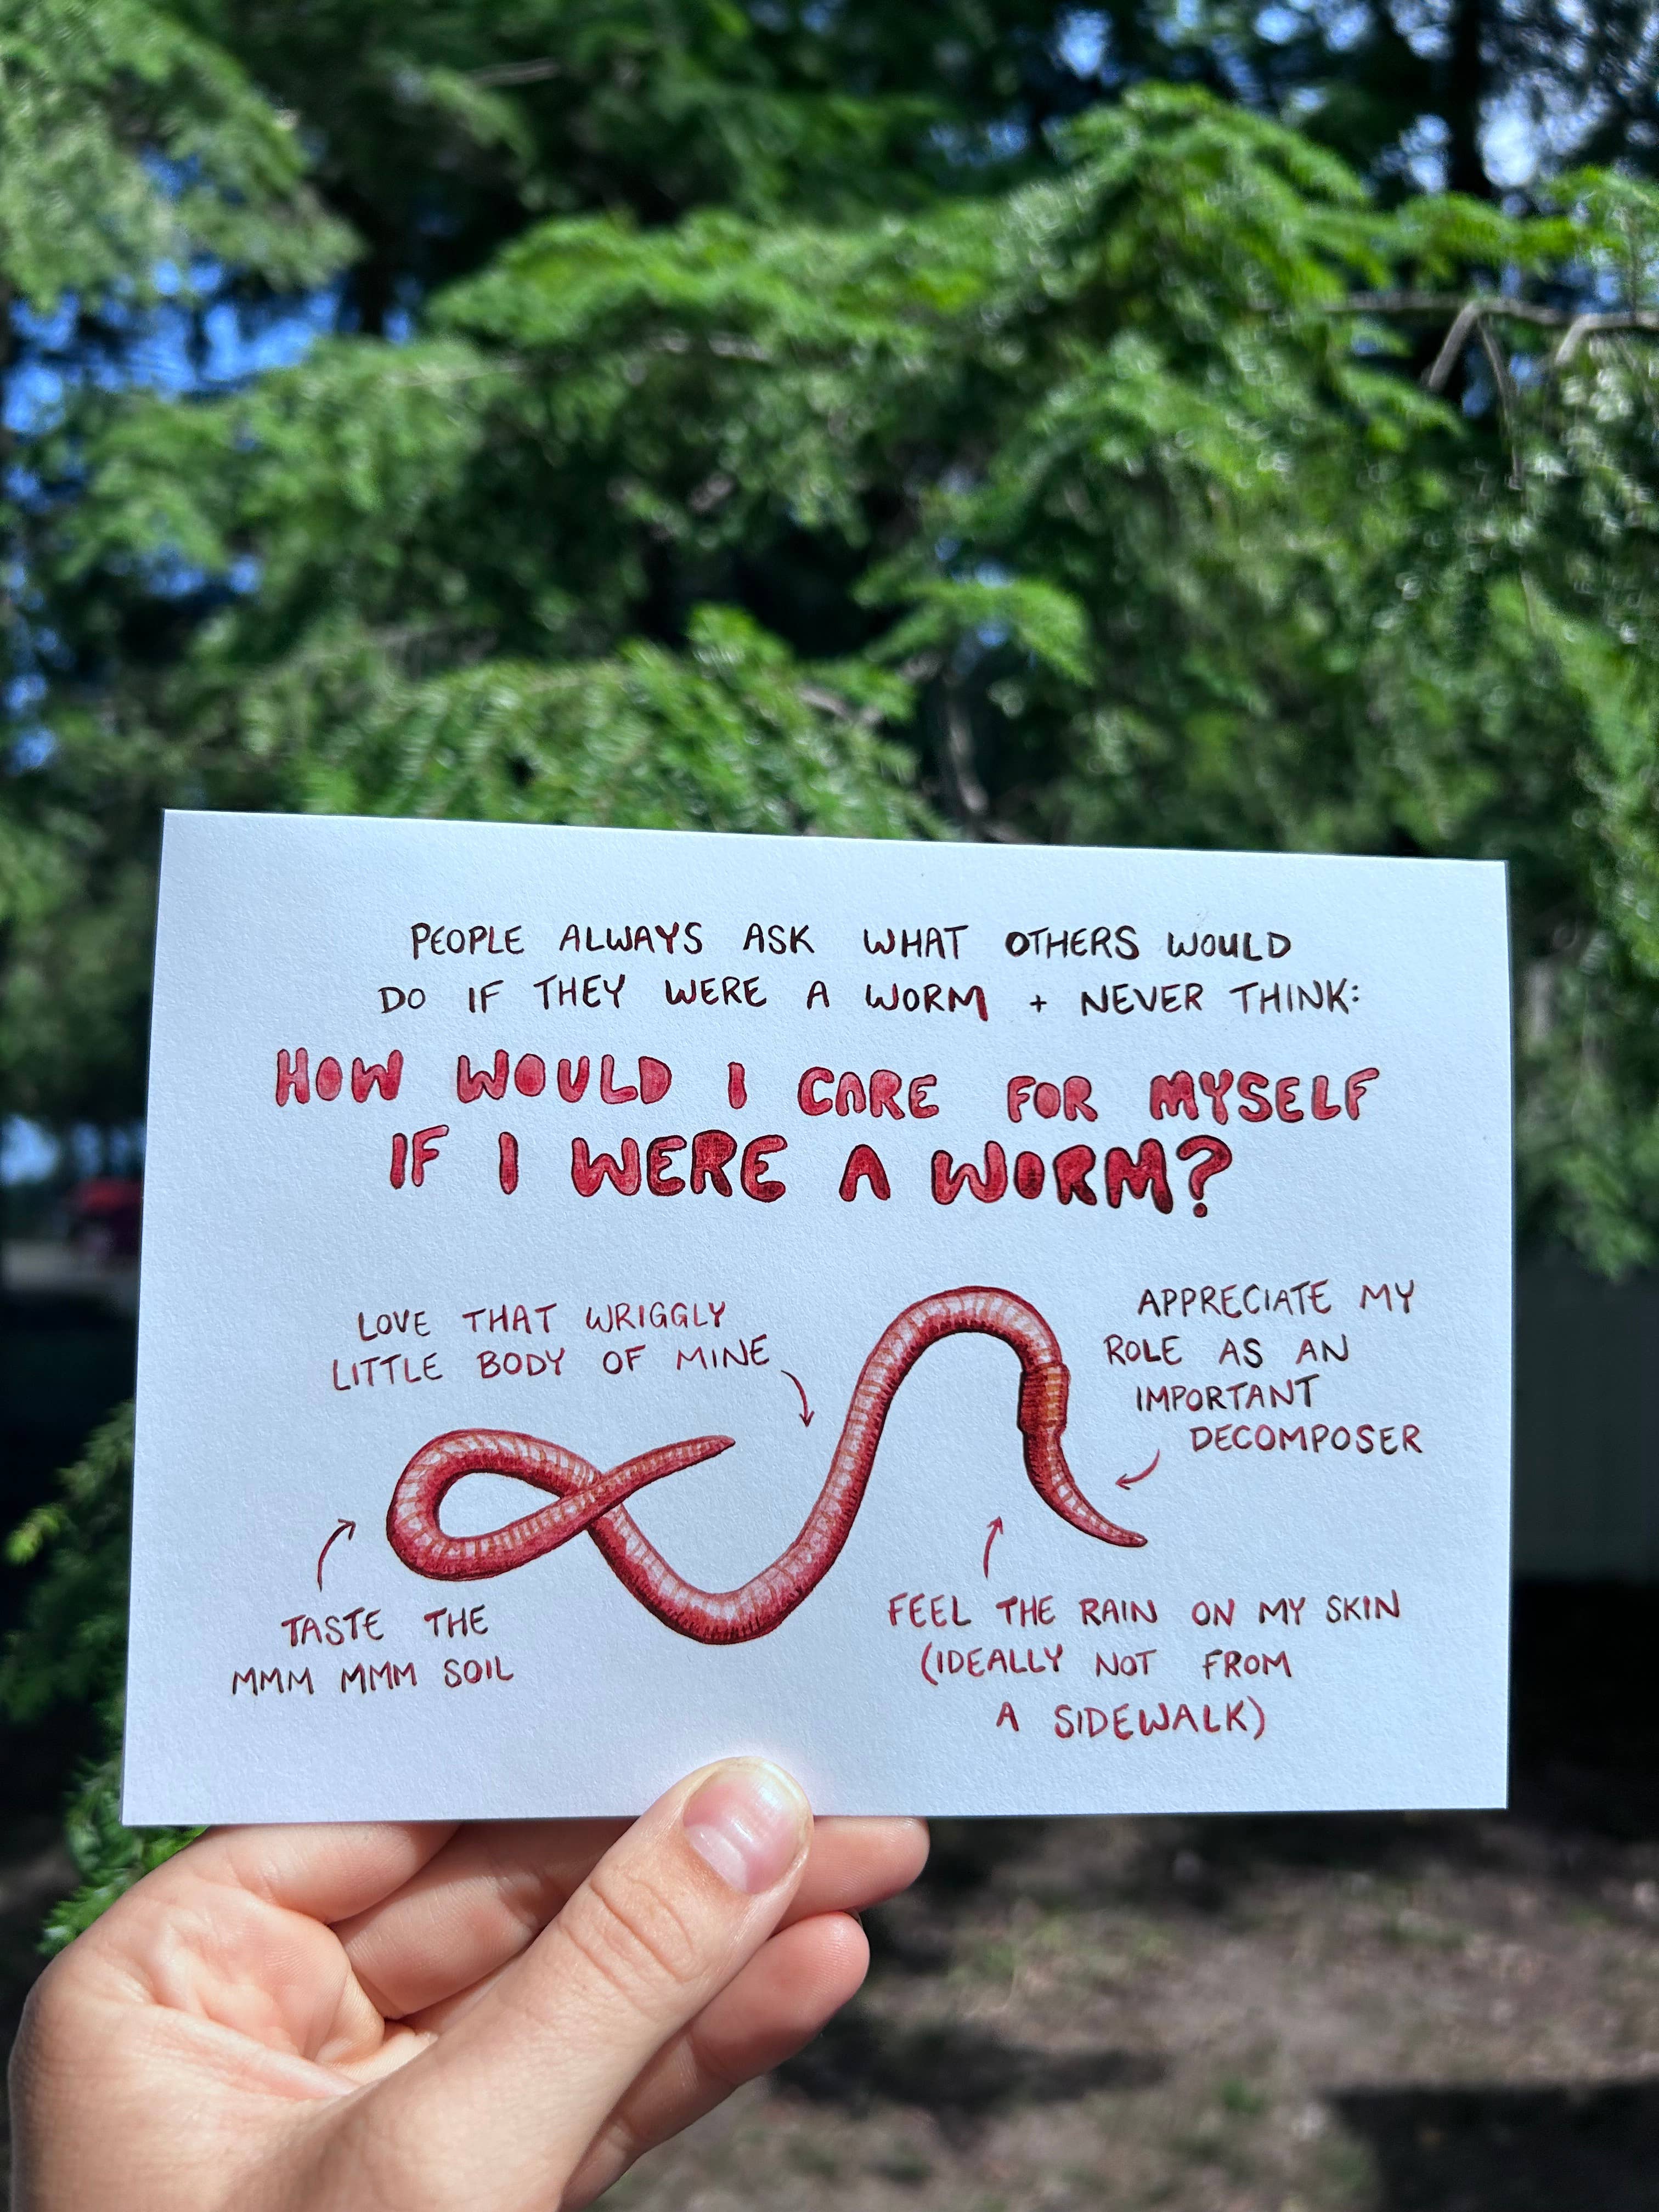 PEOPLE ALWAYS ASK WHAT OTHERS WOULD
DO IF THEY WERE A WORM + NEVER THINK:
HOW WOULD I CARE FOR MYSELF
IF I WERE A WORM?
LOVE THAT WRIGGLY
LITTLE BODY OF MINE
APPRECIATE MY
ROLE AS AN
IMPORTANT
DECOMPOSER
TASTE THE
MMM MMM SOIL
FEEL THE RAIN ON MY SKIN
(IDEALLY NOT FROM
A SIDEWALK)